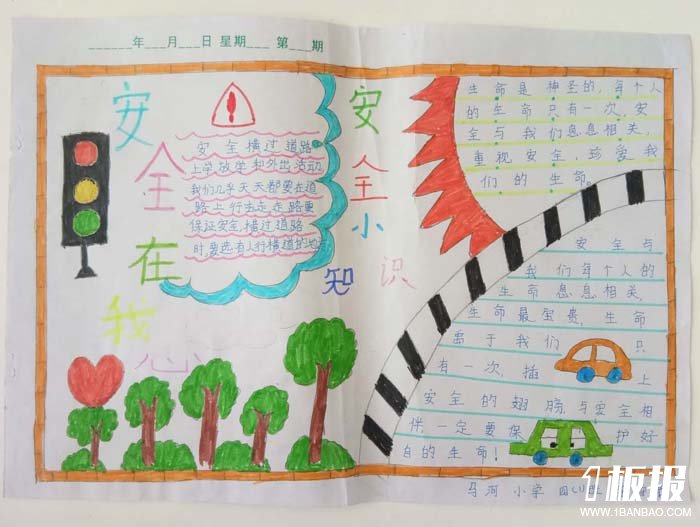 ______年___月___日 星期___ 第___期
安全在我心
安全横过道路
上学放学和外出活动,
我们几乎天天都要在道
路上行走走路要
保证安全横过道路
时,要选有人行横道的地
安全小知识
生命是神圣的,每个人
的生命只有一次,安
全与我们息息相关,
重视安全,珍爱我
们的生命。
安全与
我们每个人的
生命息息相关,
生命最宝贵,生命
离于我们只
有一次,插上
安全的翅膀,与安全相
伴一定要保护好
自的生命!
马河小学 四(1)班
1板报
WWW.1BANBAO.COM